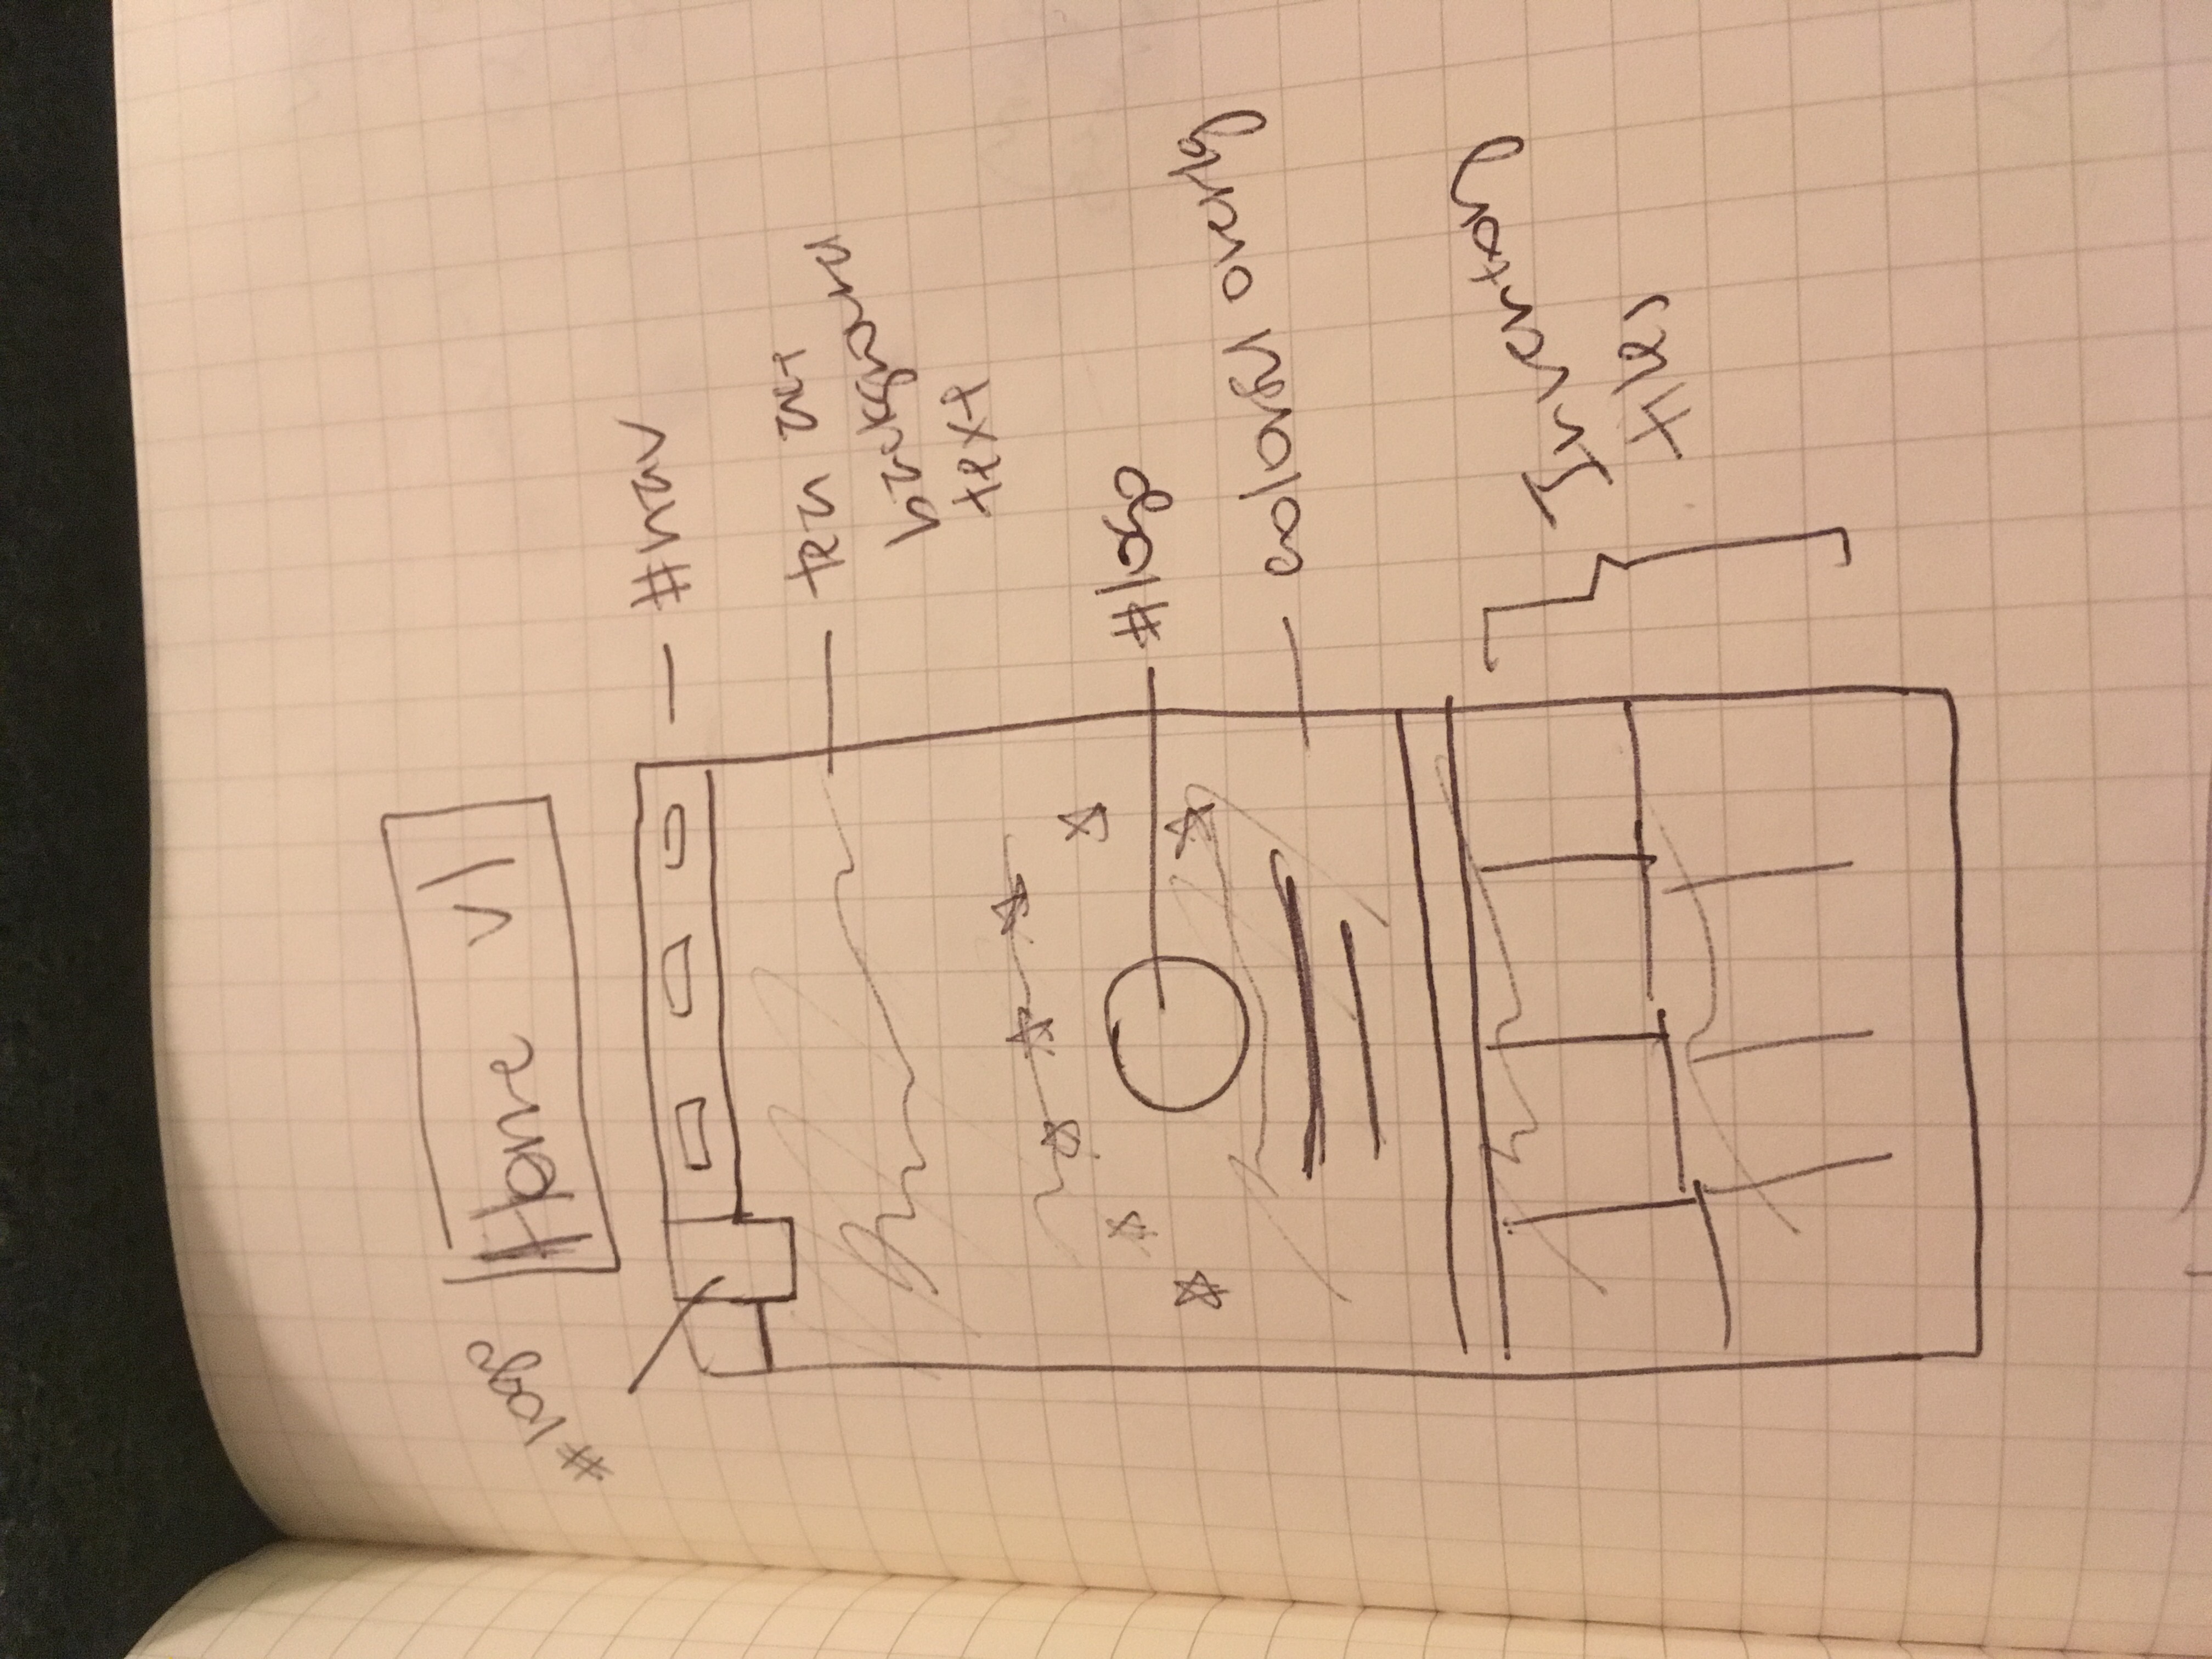 Home v1
#logo
#nav
tea act
background
text
#logo
colorful overlg
Inventory
tiles